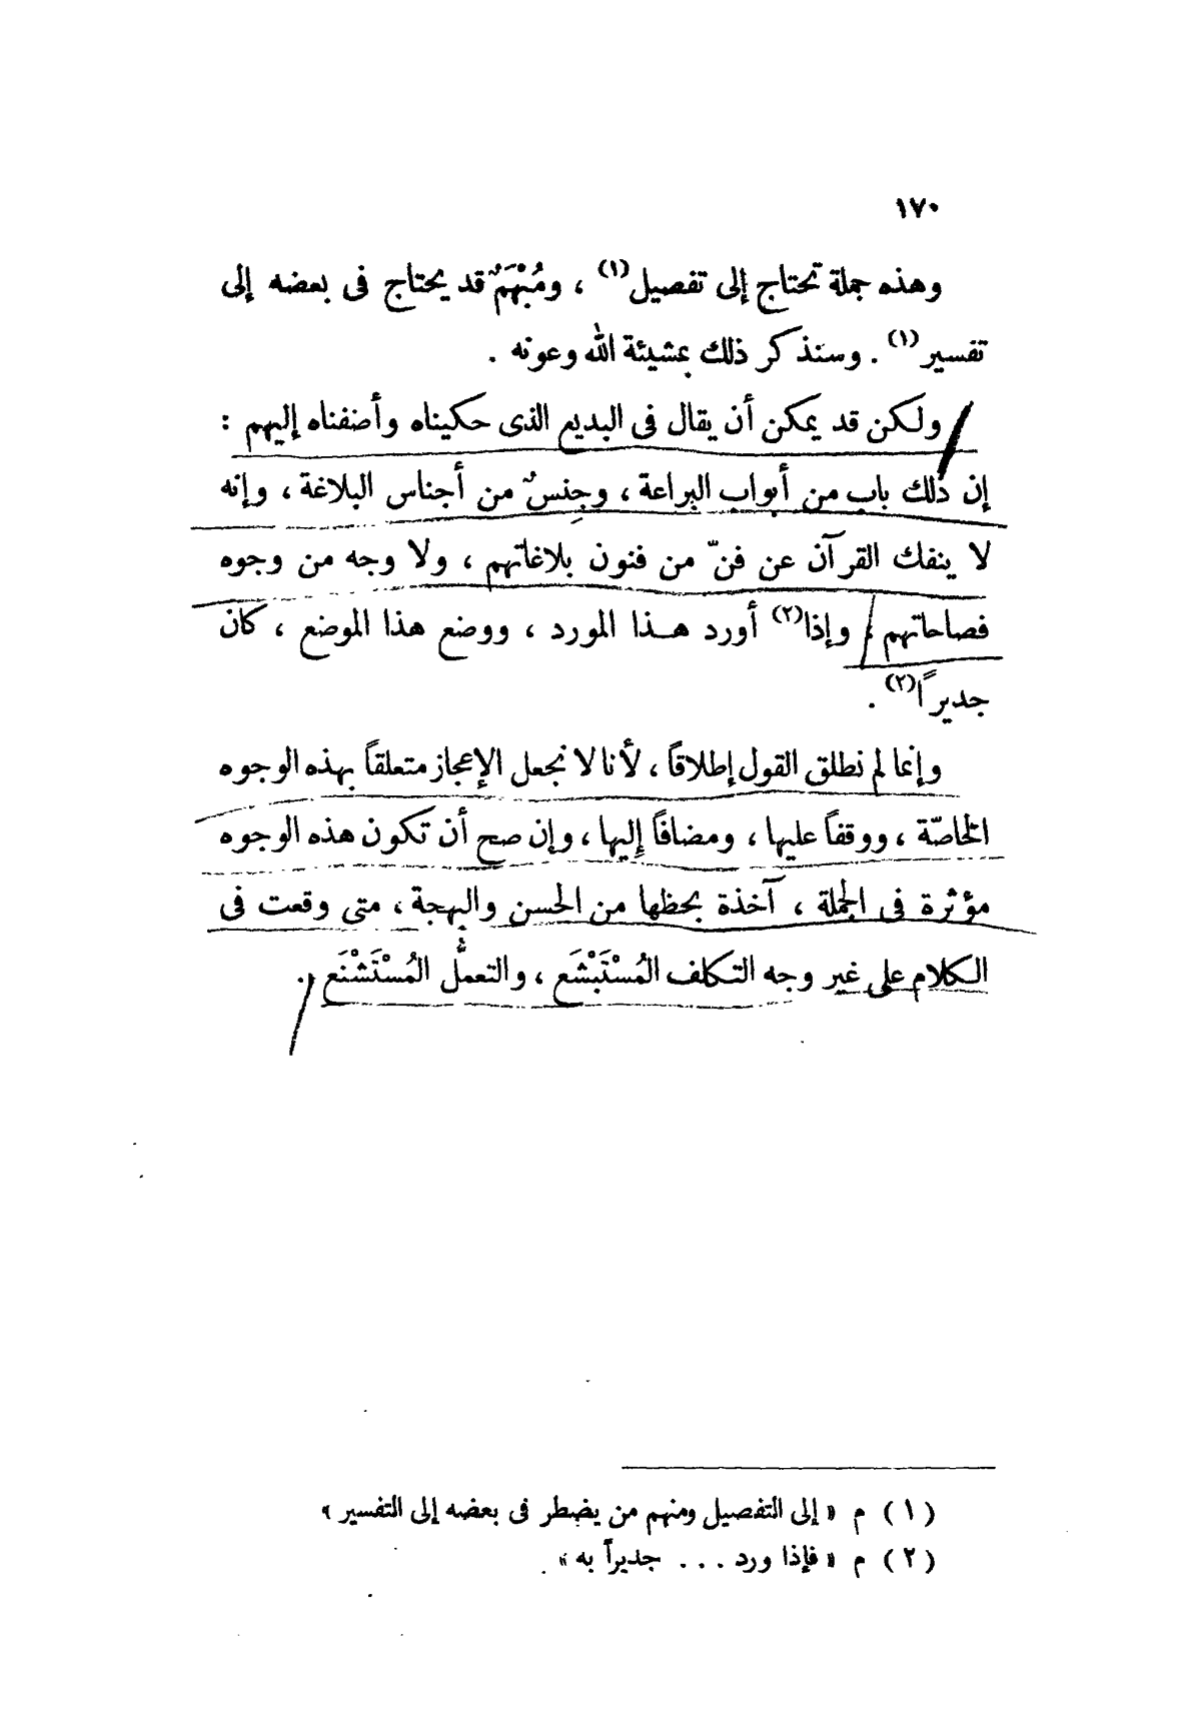 ١٧٠
وهذه جملة تحتاج إلى تفصيل(١) ، ومُبْهَمٌ قد يحتاج فى بعضه إلى
تفسير(١) . وسنذكر ذلك بمشيئة الله وعونه .
ولكن قد يمكن أن يقال فى البديع الذى حكيناه وأضفناه إليهم :
إن ذلك باب من أبواب البراعة ، وجنسٌ من أجناس البلاغة ، وإنه
لا ينفك القرآن عن فنّ من فنون بلاغاتهم ، ولا وجه من وجوه
فصاحاتهم ، وإذا(٢) أورد هذا المورد ، ووضع هذا الموضع ، كان
جديراً(٢) .
وإنما لم نطلق القول إطلاقاً ، لأنا لا نجعل الإعجاز متعلقاً بهذه الوجوه
الخاصّة ، ووقفاً عليها ، ومضافاً إليها ، وإن صح أن تكون هذه الوجوه
مؤثرة فى الجملة ، آخذة بحظها من الحسن والبهجة ، متى وقعت فى
الكلام على غير وجه التكلف المُسْتَبْشَع ، والتعمُّل المُسْتَشْنَع .
(١) م « إلى التفصيل ومنهم من يضطر فى بعضه إلى التفسير »
(٢) م « فإذا ورد . . . جديراً به » .